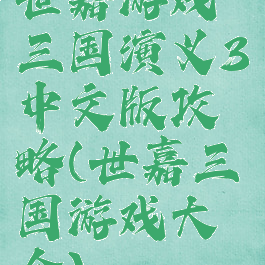 世嘉游戏
三国演义3
中文版攻
略(世嘉三
国游戏大
全)